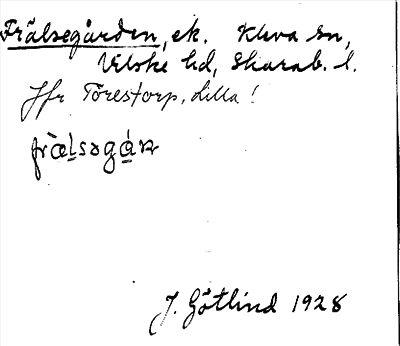 Frälsegården, ek. Kleva sn,
Vilske hd, Skarab. l.
Jfr Torestorp, Lilla!
J. Götlind 1928